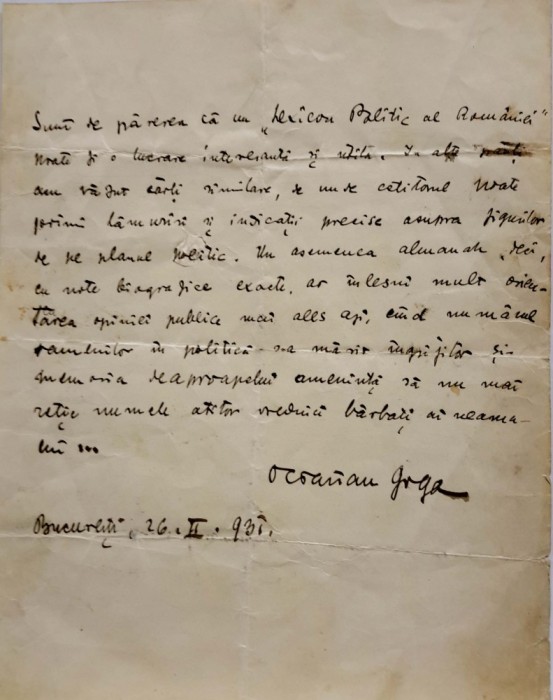 Sunt de părerea că un „Lexicon Politic al României"
poate fi o lucrare interesantă și utilă. În alte părți
am văzut cărți similare, de unde cetitorul poate
primi lămuriri și indicații precise asupra figurilor
de pe planul politic. Un asemenea almanah deci,
cu note biografice exacte, ar înlesni mult orien-
tarea opiniei publice mai ales azi, cînd numărul
oamenilor în politică s-a mărit îngrijitor și
memoria deaproapelui amenință să nu mai
reție numele atîtor vrednici bărbați ai neamu-
lui ...
Octavian Goga
București, 26. II. 931.